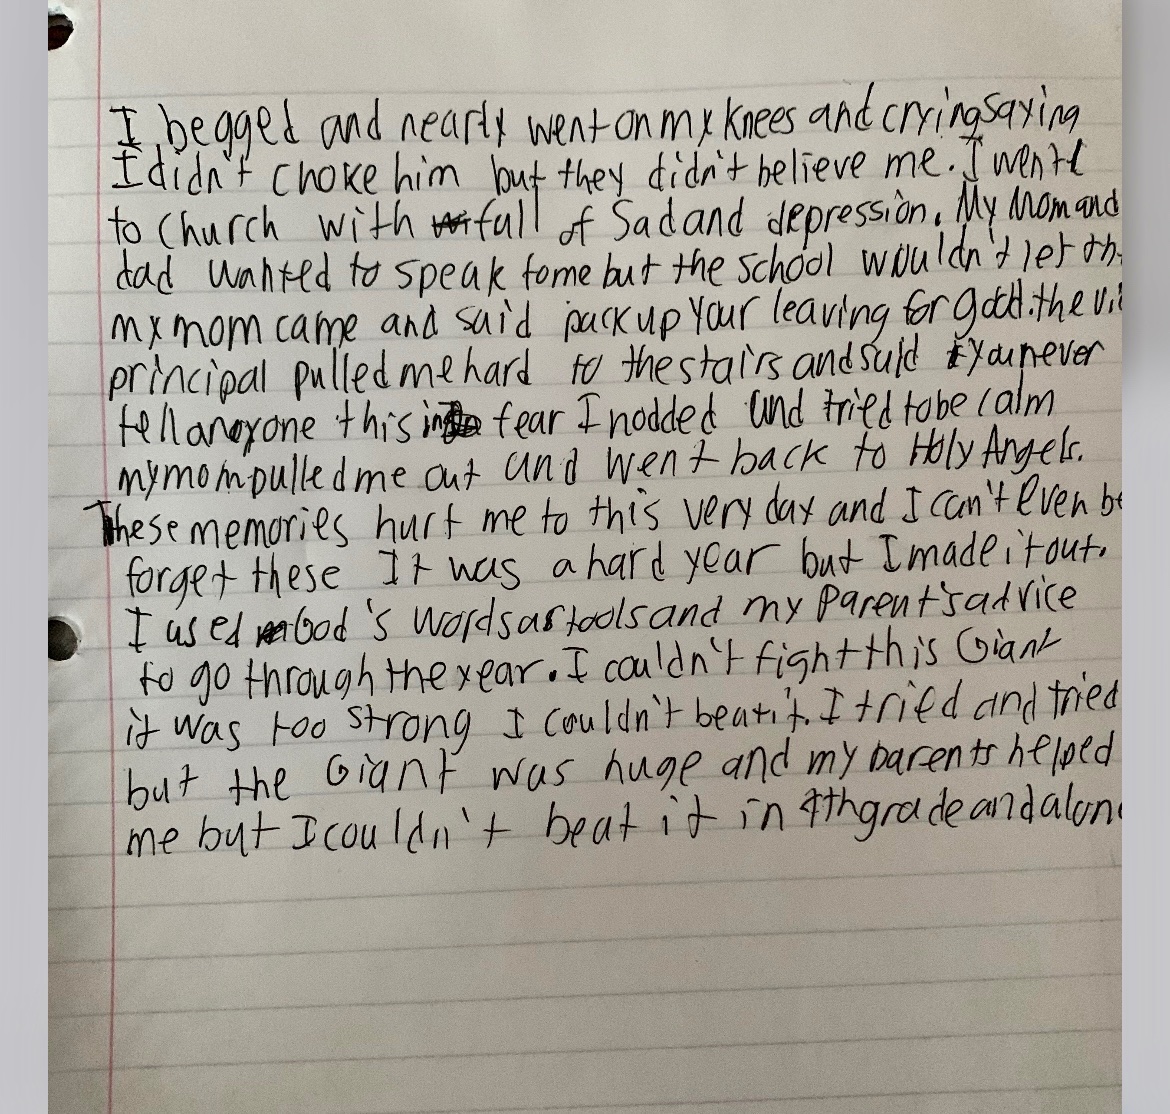 I begged and nearly went on my knees and crying saying
I didn't choke him but they didn't believe me. I went
to church with full of Sad and depression. My Mom and
dad wanted to speak to me but the school wouldn't let
my mom came and said pack up your leaving for good. the
principal pulled me hard to the stairs and said you never
tell anyone this fear I nodded and tried to be calm
my mom pulled me out and went back to Holy Angels.
These memories hurt me to this very day and I can't even
forget these It was a hard year but I made it out.
I used God's words as tools and my Parent's advice
to go through the year. I couldn't fight this Giant
it was too strong I couldn't beat it. I tried and tried
but the Giant was huge and my parents helped
me but I couldn't beat it in 4th grade and